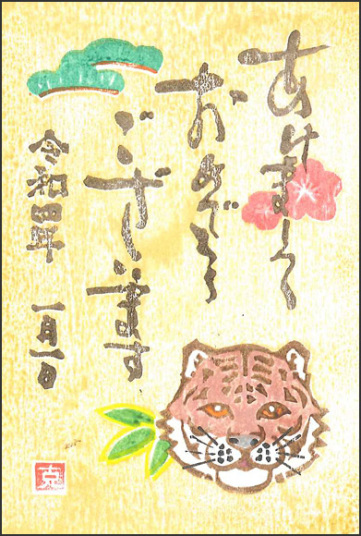 あけまして
おめでとう
ございます
令和四年 一月一日